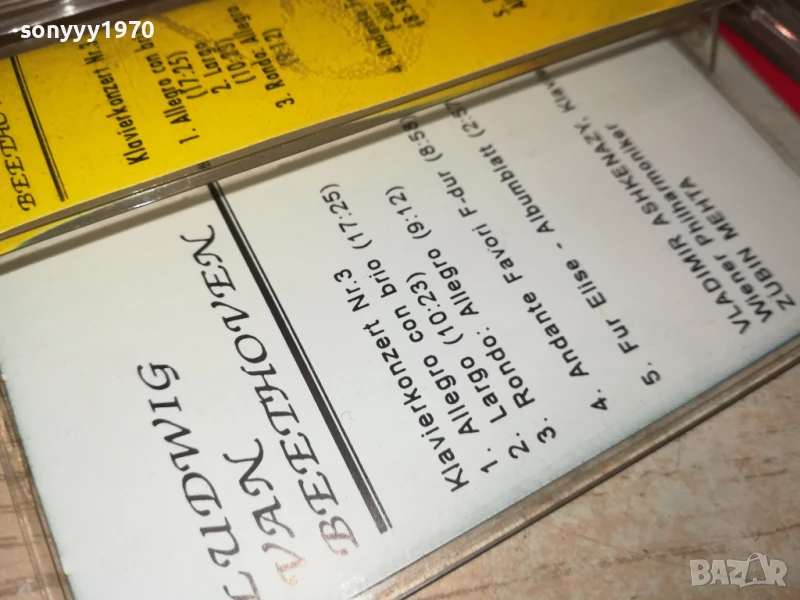 sonyyy1970
Klavierkonzert Nr.
1. Allegro con b
(17:25)
2. Largo
(10:23)
3. Rondo: Allegro
LUDWIG
VAN
BEETHOVEN
Klavierkonzert Nr.3
1. Allegro con brio (17:25)
2. Largo (10:23)
3. Rondo: Allegro (9:12)
4. Andante Favori F-dur (8:58)
5. Fur Elise - Albumblatt (2:57
VLADIMIR ASHKENAZY, Klav
Wiener Philharmoniker
ZUBIN MEHTA
BAZAR